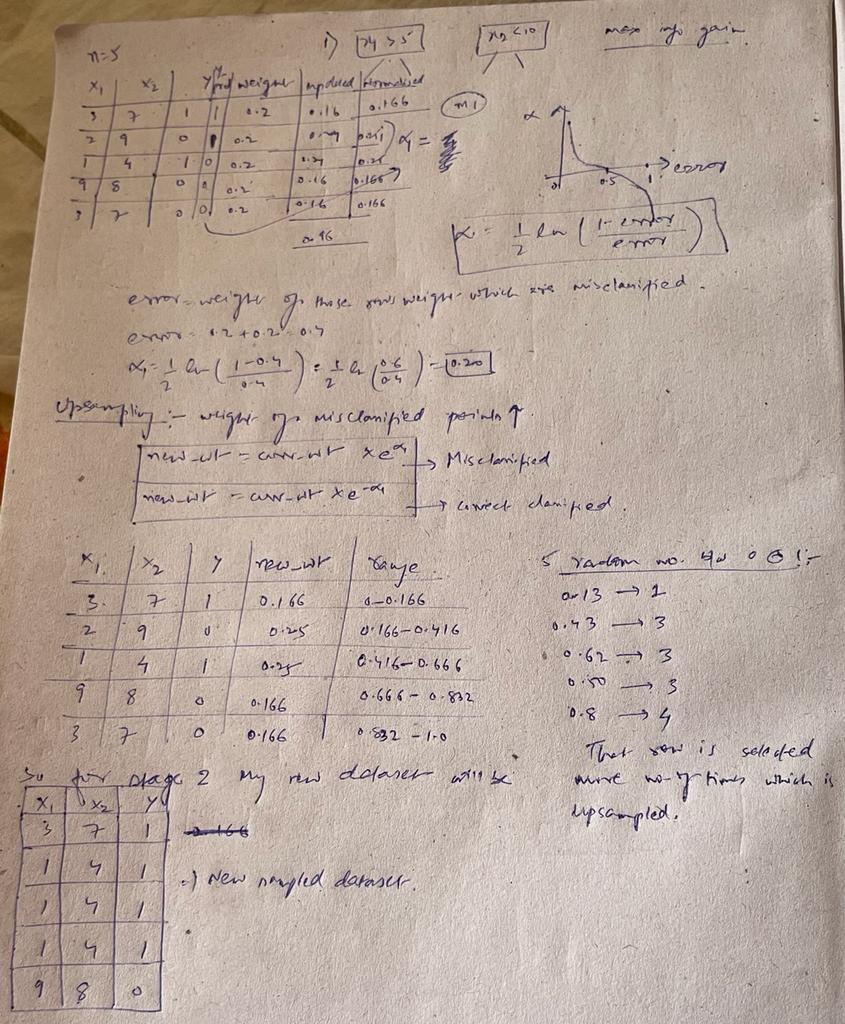 n=5
1) x1 > 5
x2 < 10
max info gain
X1 X2 Y Y pred weight updated Normalised
3 7 1 1 0.2 0.16 0.166
2 9 0 1 0.2 0.24 0.25
1 4 1 0 0.2 0.24 0.25
9 8 0 0 0.2 0.16 0.166
3 7 0 0 0.2 0.16 0.166
0.96
M1
α1 =
α
error
0 0.5 1
α = 1/2 ln (1-error/error)
error = weight of those rows weight which are misclassified.
error = 0.2 + 0.2 = 0.4
α1 = 1/2 ln (1-0.4/0.4) = 1/2 ln (0.6/0.4) = 0.20
Upsampling :- weight of misclassified points ↑
new_wt = curr_wt × e^α1 → Misclassified
new_wt = curr_wt × e^-α1 → correct classified.
X1 X2 Y new_wt range
3 7 1 0.166 0-0.166
2 9 0 0.25 0.166-0.416
1 4 1 0.25 0.416-0.666
9 8 0 0.166 0.666-0.832
3 7 0 0.166 0.832-1.0
5 random no. b/w 0 & 1:-
0.13 → 1
0.43 → 3
0.62 → 3
0.50 → 3
0.8 → 4
That row is selected
more no. of times which is
upsampled.
So for stage 2 my new dataset will be
X1 X2 Y
3 7 1
1 4 1
1 4 1
1 4 1
9 8 0
New sampled dataset.